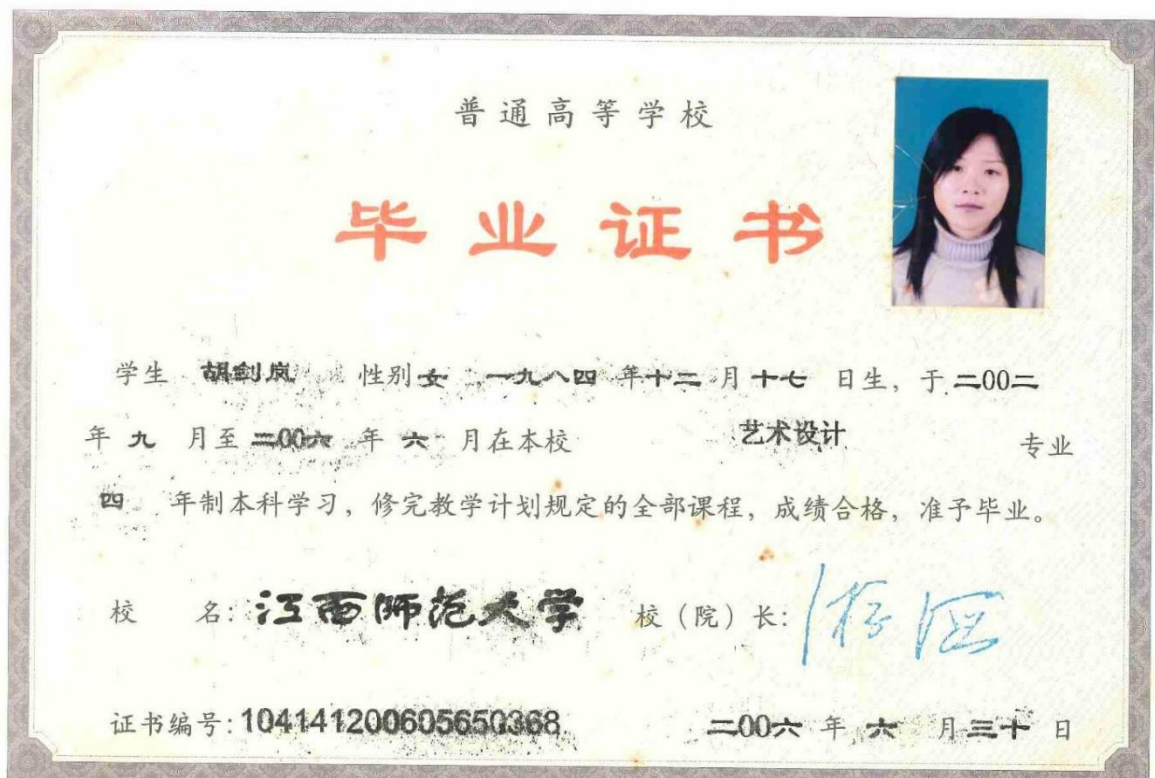 普通高等学校
毕业证书
学生 胡剑岚 性别 女 一九八四 年 十二 月 十七 日生，于 二00二
年 九 月至 二00六 年 六 月在本校 艺术设计 专业
四 年制本科学习，修完教学计划规定的全部课程，成绩合格，准予毕业。
校 名：江西师范大学 校（院）长：
证书编号：104141200605650368 二00六 年 六 月 三十 日